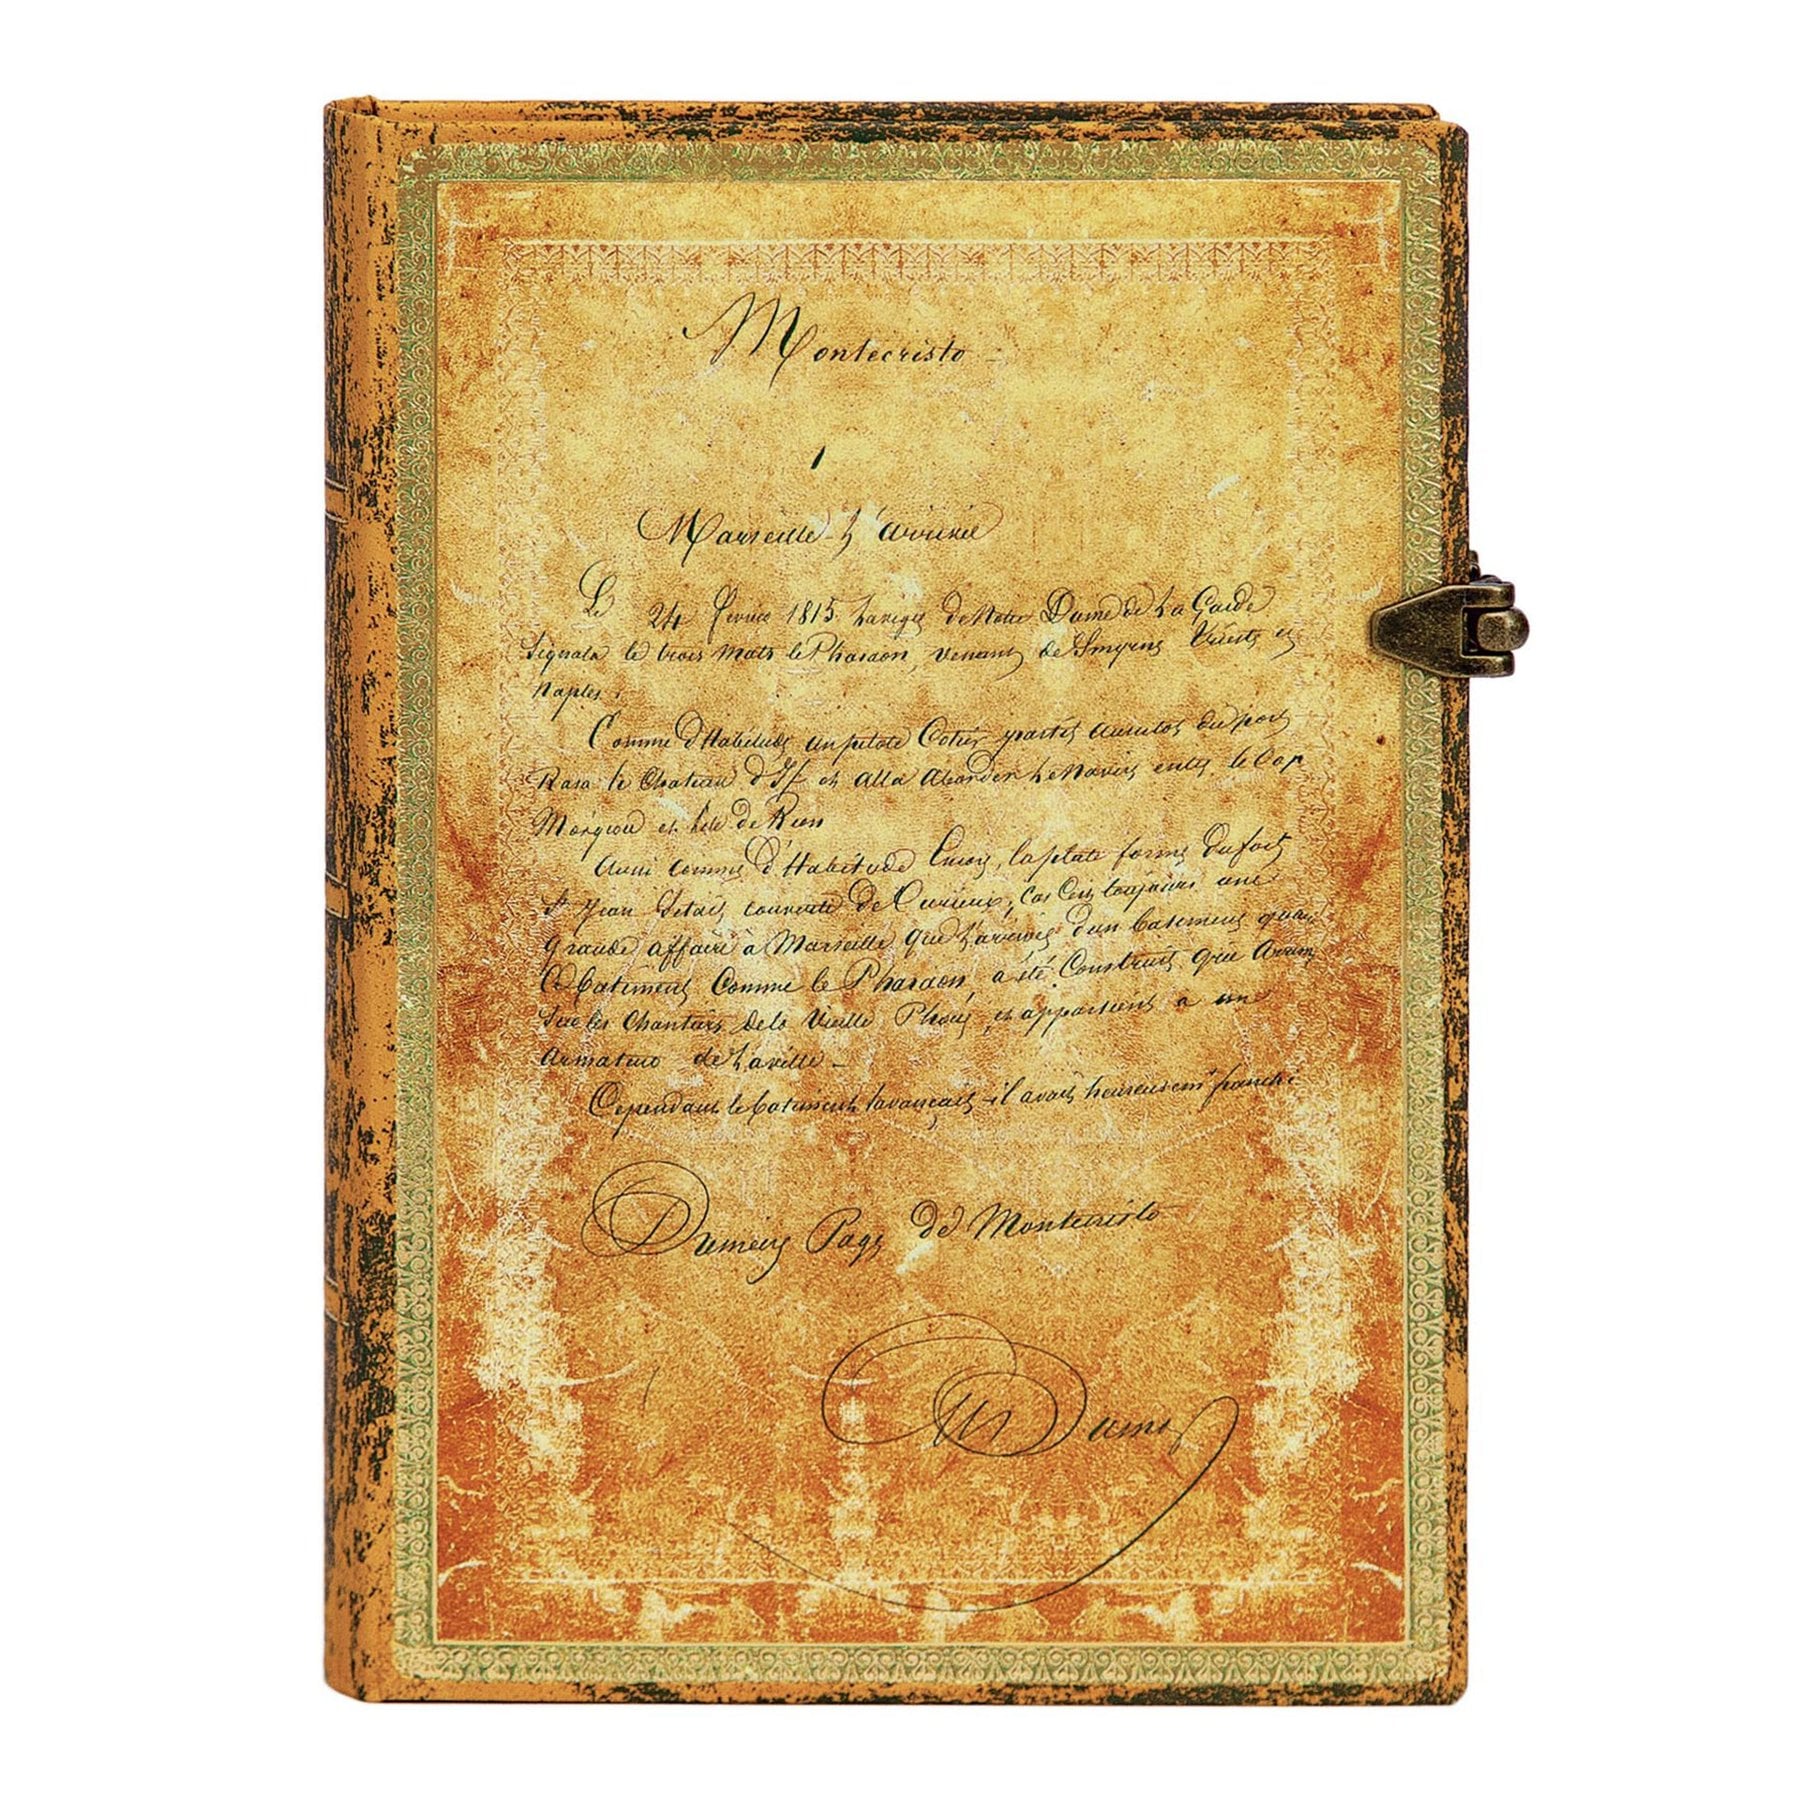 Montecristo -
1
Marseille - L'arrivée
Le 24 fevrier 1815 la vigie de Notre Dame de La Garde
signala le trois mats le Pharaon, venant de Smyrne Trieste et
Naples.
Comme d'Habitude un pilote Cotier partit aussitot du port
Rasa le Chateau d'If et alla aborder le Navire entre le Cap
Morgiou et L'ile de Rion
Aussi comme d'Habitude encore, la plate forme du fort
St Jean s'etait couverte de Curieux, car c'est toujours une
grande affaire à Marseille que L'arrivée d'un batiment quand
Ce batiment Comme le Pharaon, a été Construit gréé Arrimé
sur les Chantiers de la Vieille Phocée, et appartient a un
armateur de La ville -
Cependant le batiment s'avançait - il avait heureusemt franchi
Derniere Page de Montecristo
Al Dumas